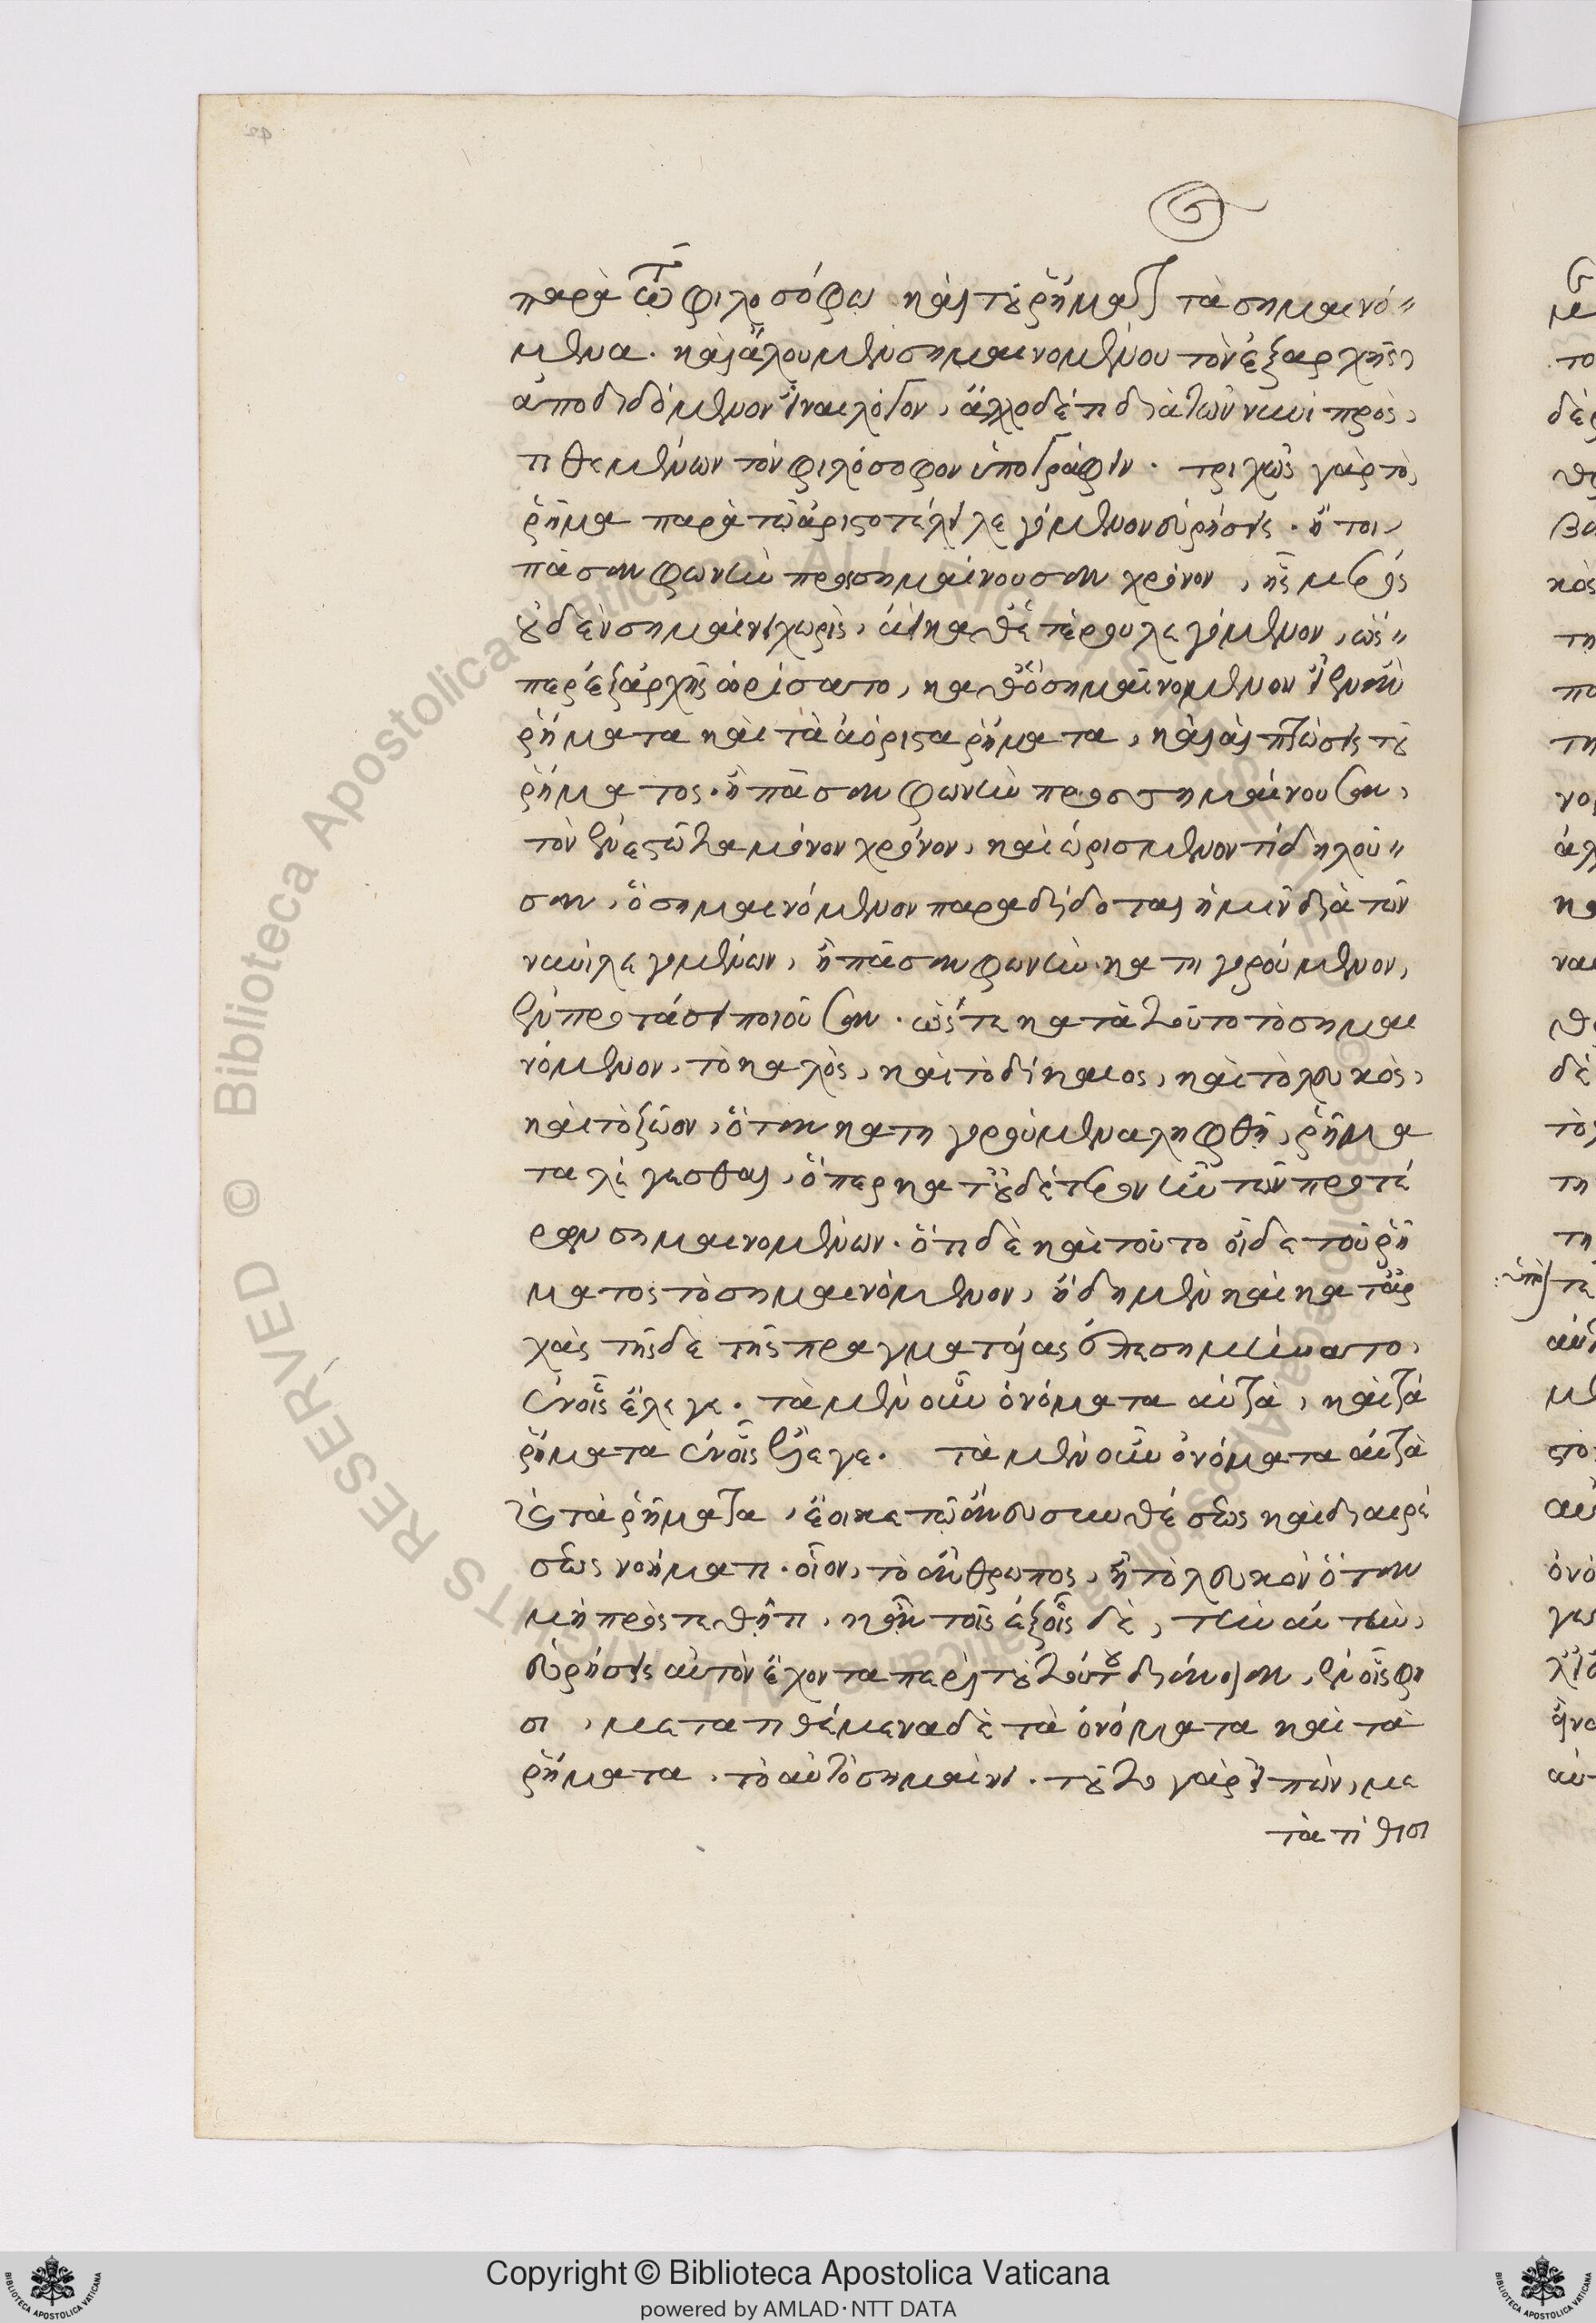 παρὰ τῶ φιλοσόφω καὶ τοῦ ῥήματος τὰ σημαινό-
μενα. καὶ ἄλλου μὲν σημαινομένου τὸν ἐξαρχῆς,
ἀποδιδόμενον εἶναι λόγον, ἄλλο δέ τι διὰ τῶν νυνὶ προς,
τιθεμένων τὸν φιλόσοφον ὑπογράφειν. τριχῶς γὰρ τὸ,
ῥῆμα παρὰ τῶ ἀριστοτέλει λεγόμενον εὑρήσεις. ἤτοι,
πᾶσαν φωνὴν προσημαίνουσαν χρόνον, ἧς μέρος
οὐδὲν σημαίνει χωρὶς, ἀεὶ καθ' ἑτέρου λεγόμενον, ὡς-
περ ἐξαρχῆς ὡρίσατο, καθ' ὃ σημαινόμενον εἶεν ἂν
ῥήματα καὶ τὰ ἀόριστα ῥήματα, καὶ αἱ πτώσεις τοῦ
ῥήματος. ἢ πᾶσαν φωνὴν προσσημαίνουσαν,
τὸν ἐνεστῶτα μόνον χρόνον, καὶ ὡρισμένον τί δηλοῦ-
σαν, ὃ σημαινόμενον παραδίδοται ἡμῖν διὰ τῶν
νυνὶ λεγομένων, ἢ πᾶσαν φωνὴν κατηγορούμενον,
ἐν προτάσει ποιοῦσαν. ὥστε κατὰ τοῦτο τὸ σημαι
νόμενον, τὸ καλὸς, καὶ τὸ δίκαιος, καὶ τὸ λευκὸς,
καὶ τὸ ζῶον, ὅταν κατηγορούμενα ληφθῆ, ῥήμα
τα λέγεσθαι, ὅπερ κατ' οὐδέτερον ἦν τῶν προτέ
ρων σημαινομένων. ὅτι δὲ καὶ τοῦτο οἶδε τοῦ ῥή
ματος τὸ σημαινόμενον, ἤδη μὲν καὶ κατ' ἀρ
χὰς τῆς δὲ τῆς πραγματείας ἐπεσημήνατο,
ἐν οἷς ἔλεγε. τὰ μὲν οὖν ὀνόματα αὐτὰ, καὶ τὰ
ῥήματα ἐν οἷς ἔλεγε. τὰ μὲν οὖν ὀνόματα αὐτὰ
καὶ τὰ ῥήματα, ἔοικε τῶ ἄνευ συνθέσεως καὶ διαιρέ
σεως νοήματι. οἷον, τὸ ἄνθρωπος, ἢ τὸ λευκὸν ὅταν
μὴ προστεθῆ τι, κἀν τοῖς ἑξῆς δὲ, τὴν αὐτὴν,
εὑρήσεις αὐτὸν ἔχοντα περὶ τοῦ τούτου διάνοιαν, ἐν οἷς φη
σι, μετατιθέμενα δὲ τὰ ὀνόματα καὶ τὰ
ῥήματα, τὸ αὐτὸ σημαίνει. τοῦτο γὰρ εἰπὼν, με
τατίθησι